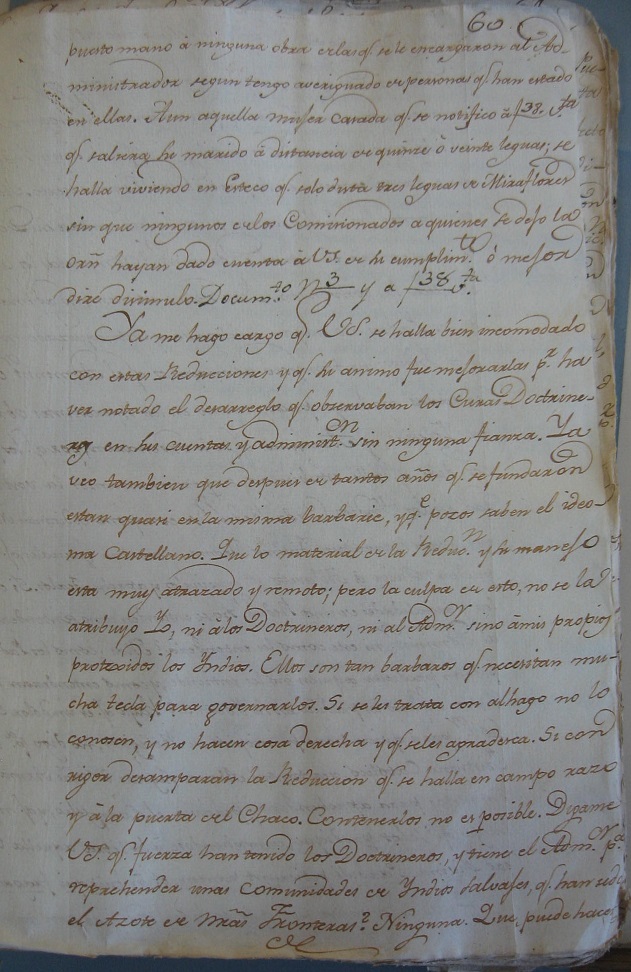 60
puesto mano à ninguna obra de las q.e se le encargaron al Ad-
ministrador segun tengo averiguado de personas q.e han estado
en ellas. Aun aquella muger casada q.e se notifico à f 38. v.ta
q.e saliera su marido à distancia de quinze ò veinte leguas; se
halla viviendo en Esteco q.e solo dista tres leguas de Miraflores
sin que ningunos de los Comicionados a quienes se dejo la
orñ hayan dado cuenta à VS. de su cumplim.to ò mejor
dire disimulo. Docum.to N 3 y a f 38 v.ta
Ya me hago cargo q.e VS. se halla bien incomodado
con estas Reducciones y q.e su animo fue mejorarlas p.r ha
ver notado el desarreglo q.e observaban los Curas Doctrine-
ros en sus cuentas y administ.on sin ninguna fianza. Ya
veo tambien que despues de tantos años q.e se fundaron
estan quasi en la misma barbarie, y q.e pocos saben el ideo-
ma Castellano. Que lo material de la Reduc.n y su manejo
esta muy atrazado y remoto; pero la culpa de esto, no se la
atribuyo Yo, ni à los Doctrineros, ni al Adm.or sino àmis propios
protexidos los Yndios. Ellos son tan barbaros q.e necesitan mu-
cha tecla para governarlos. Si se les trata con alhago no lo
conosen, y no hacen cosa derecha y q.e se les agradesca. Si con
rigor desamparan la Reduccion q.e se halla en campo razo
y à la puerta del Chaco. Contenerlos no es posible. Digame
VS. q.e fuerza han tenido los Doctrineros, y tiene el Adm.or p.a
reprehender unas comunidades de Yndios salvajes, q.e han sido
el Azote de nrãs Fronteras? Ninguna. Que puede hacer